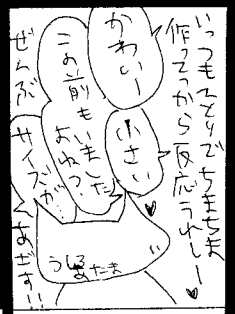 いつもひとりでちまちま
作ってっから反応うれしー
かわいー
小さい
この前もいました
よね?
サイズが…
ぜんぶ
うしろあたま